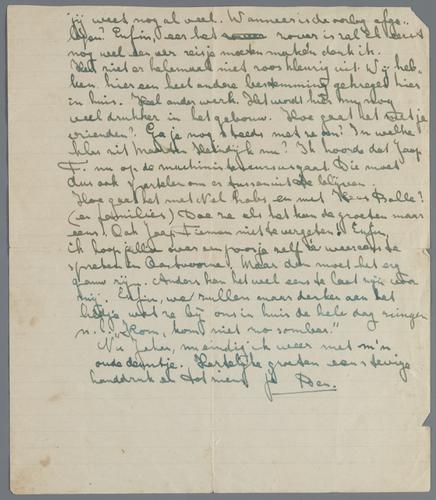 jij weet nog al veel. Wanneer is de oorlog afge-
lopen? Enfin, eer het zover is zal ik eerst
nog wel een ver reisje moeten maken denk ik.
Het ziet er helemaal niet rooskleurig uit. Wij heb-
ben hier een heel andere bestemming gekregen hier
in huis. Heel ander werk. Het wordt hier nu nog
veel drukker in het gebouw. Hoe gaat het met je
vrienden? Ga je nog steeds met ze om? In welke
klas zit Maarten Heidijk nu? Ik hoorde dat Jaap
T. nu op de machinistencursus gaat. Die moet
dus ook spartelen om er tussenuit te blijven.
Hoe gaat het met Nel Krabs en met Kees Balle?
(en families) Doe ze als het kan de groeten maar
eens! Ook Jaap Tieman niet te vergeten. Enfin,
ik hoop jullie over een poosje zelf weer eens te
spreken in Oostvoorne. Maar dan moet het erg
gauw zijn. Anders kan het wel eens te laat zijn voor
mij. Enfin, we zullen maar denken aan het
liedje wat ze bij ons in huis de hele dag zingen
n.l. "Kom, kom niet zo somber."
Nu Jehes, nu eindig ik weer met m'n
oude deuntje. Hartelijke groeten een stevige
handdruk en tot ziens je Ben.